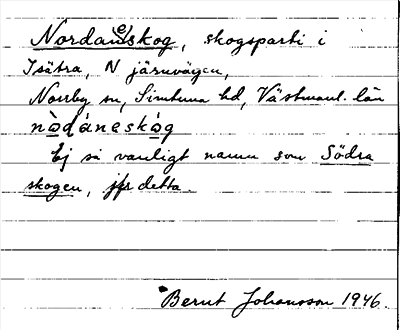 Nordaneskog, skogsparti i
Isätra, N järnvägen,
Norrby sn, Simtuna hd, Västmanl. län
nòdáneskòg
Ej så vanligt namn som Södra
skogen, jfr detta.
Bernt Johansson 1946.